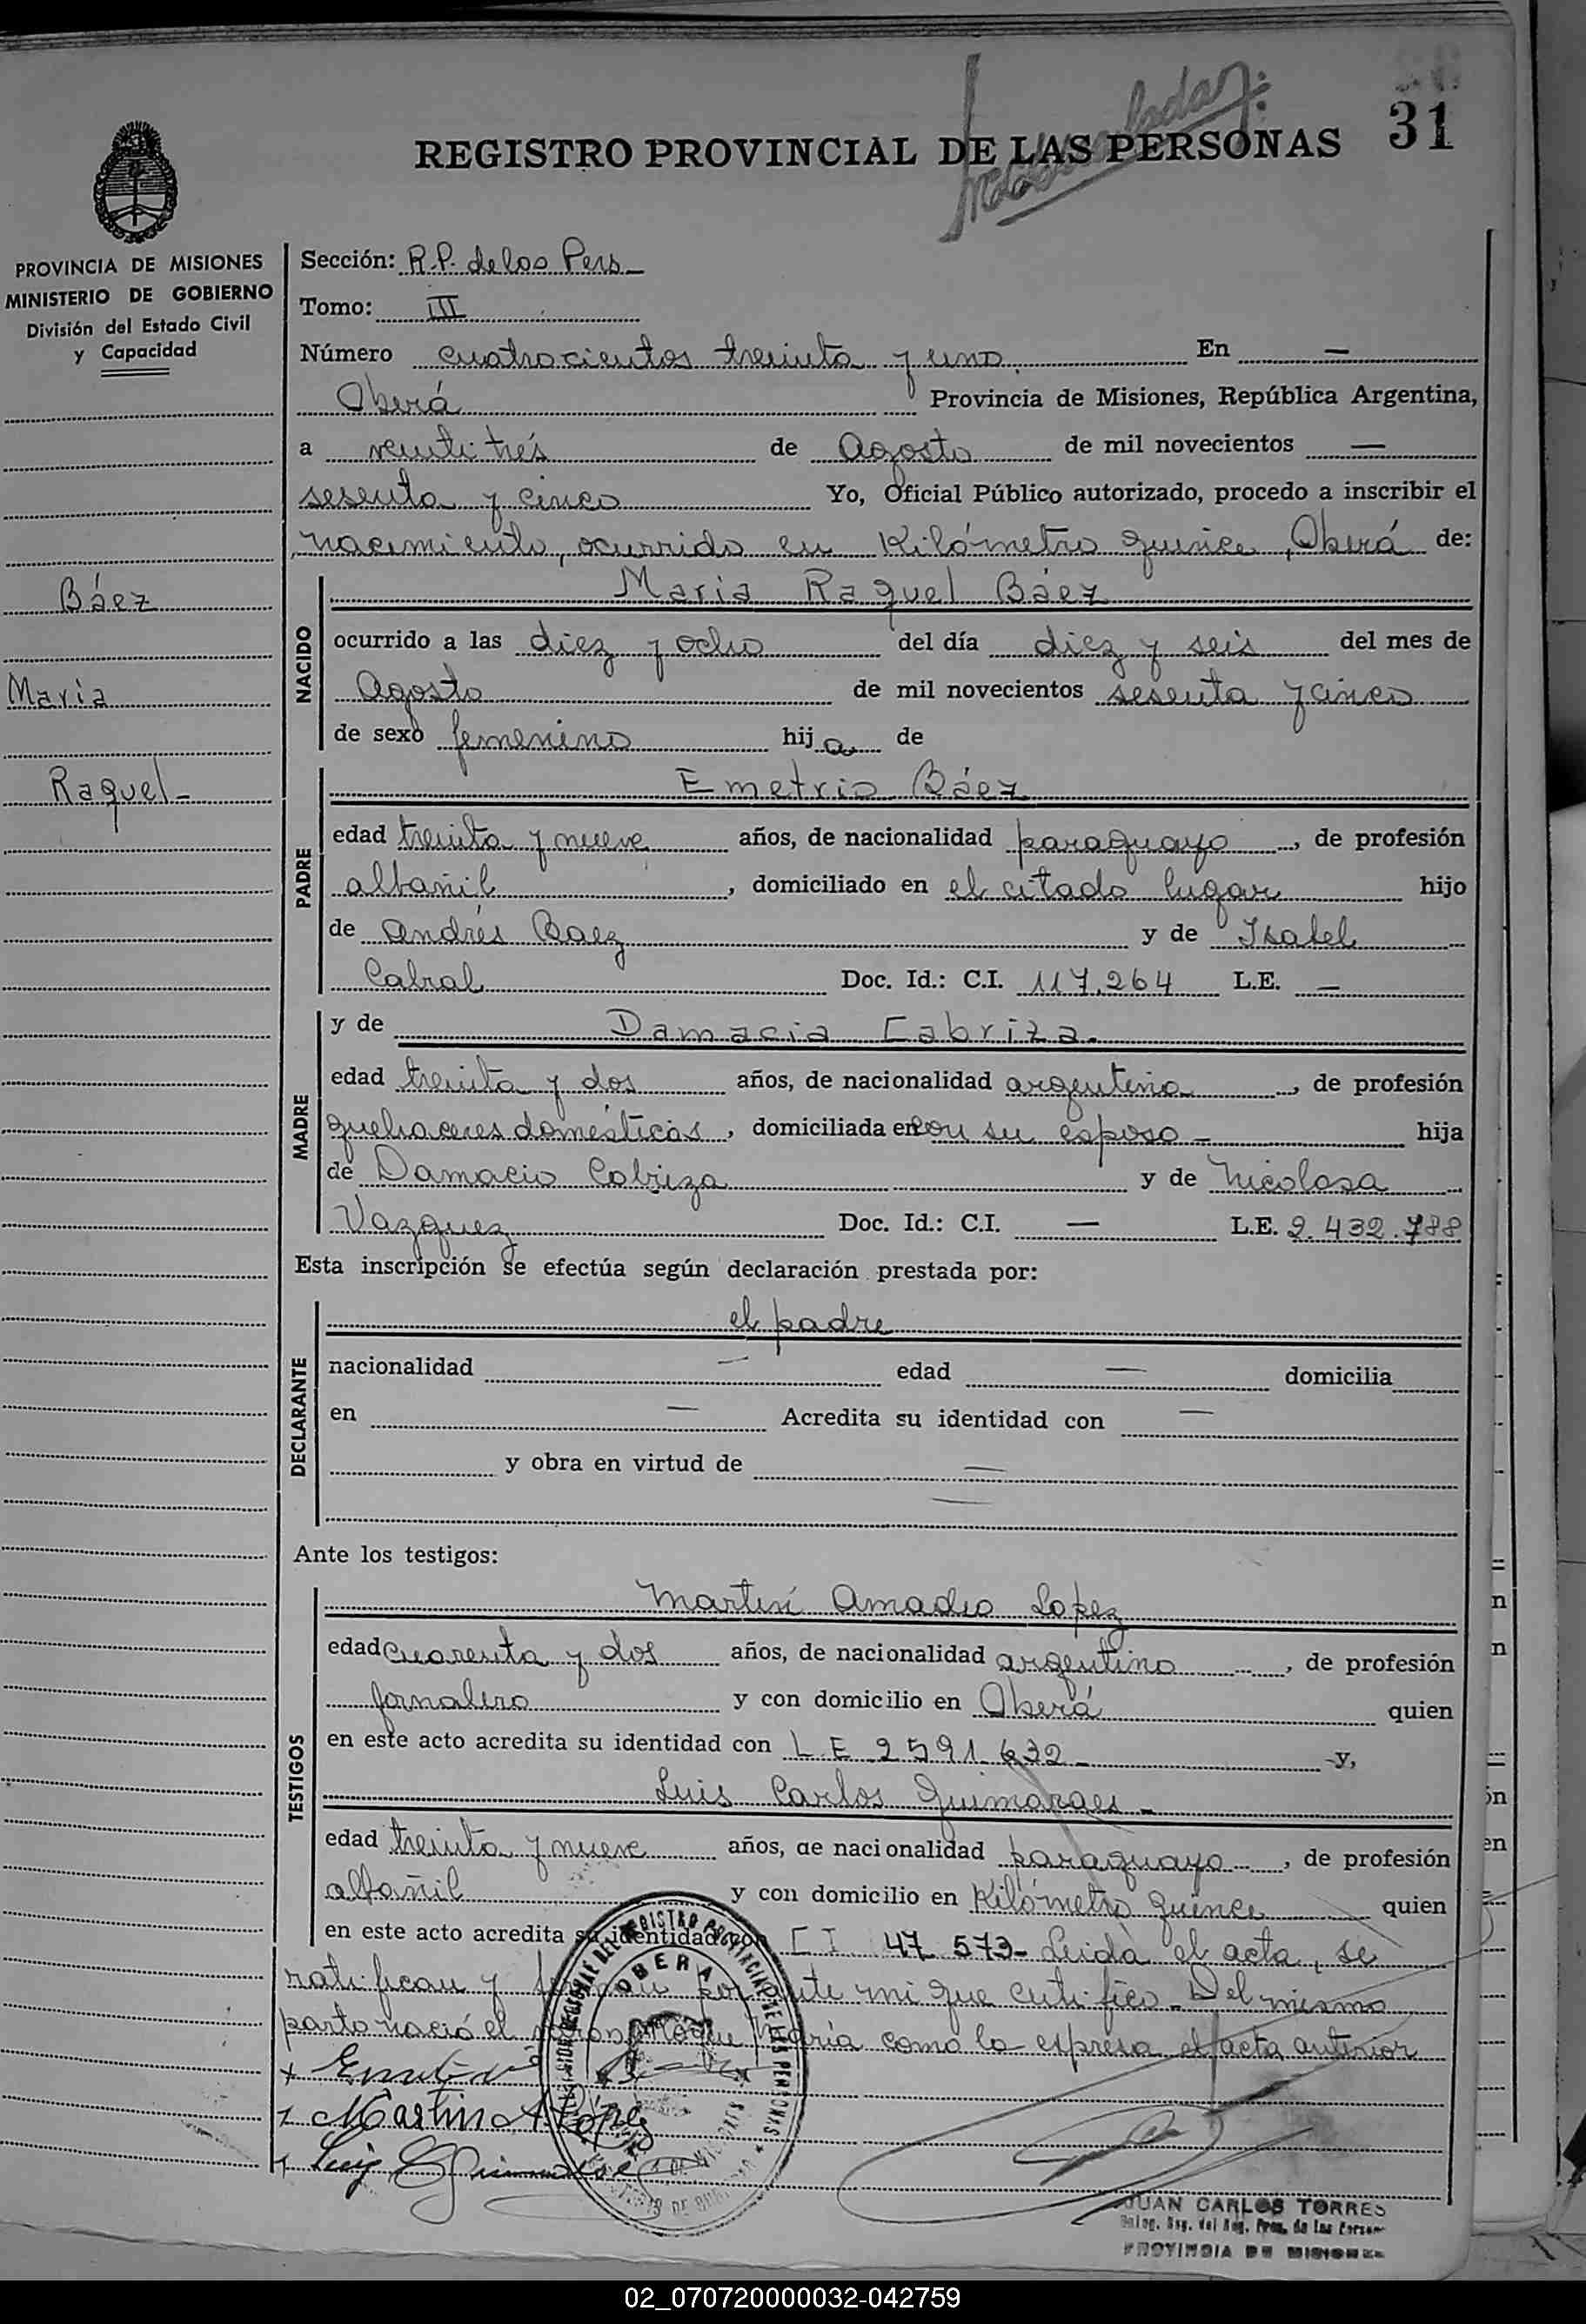 31
REGISTRO PROVINCIAL DE LAS PERSONAS
PROVINCIA DE MISIONES
MINISTERIO DE GOBIERNO
División del Estado Civil
y Capacidad
Báez
Maria
Raquel-
Sección: R.P. de los Pers_
Tomo: III
Número cuatrocientos treinta y uno En —
Oberá Provincia de Misiones, República Argentina,
a veinti trés de Agosto de mil novecientos —
sesenta y cinco Yo, Oficial Público autorizado, procedo a inscribir el
nacimiento, ocurrido en Kilómetro quince, Oberá de:
NACIDO
Maria Raquel Báez
ocurrido a las diez y ocho del día diez y seis del mes de
Agosto de mil novecientos sesenta y cinco
de sexo femenino hija de
PADRE
Emetrio Báez
edad treinta y nueve años, de nacionalidad paraguayo, de profesión
albañil, domiciliado en el citado lugar hijo
de Andrés Baez y de Isabel
Cabral Doc. Id.: C.I. 117.264 L.E. —
MADRE
y de Damacia Cabriza.
edad treinta y dos años, de nacionalidad argentina, de profesión
quehaceres domésticos, domiciliada en con su esposo - hija
de Damacio Cabriza y de Nicolasa
Vazquez Doc. Id.: C.I. — L.E. 2.432.788
Esta inscripción se efectúa según declaración prestada por:
DECLARANTE
el padre
nacionalidad — edad — domicilia
en — Acredita su identidad con —
y obra en virtud de —
—
Ante los testigos:
TESTIGOS
Martin Amadeo Lopez
edad cuarenta y dos años, de nacionalidad argentino, de profesión
jornalero y con domicilio en Oberá quien
en este acto acredita su identidad con L.E 2591 632 - y,
Luis Carlos Guimaraes -
edad treinta y nueve años, de nacionalidad paraguayo, de profesión
albañil y con domicilio en Kilómetro quince quien
en este acto acredita su identidad con C I 47 573- Leida el acta, se
ratifican y por ante mi que certifico - Del mismo
parto nació el varon Roque María como lo espresa el acta anterior
Martin A López
Luis
OBERA
JUAN CARLOS TORRES
PROVINCIA DE MISIONES
02_070720000032-042759